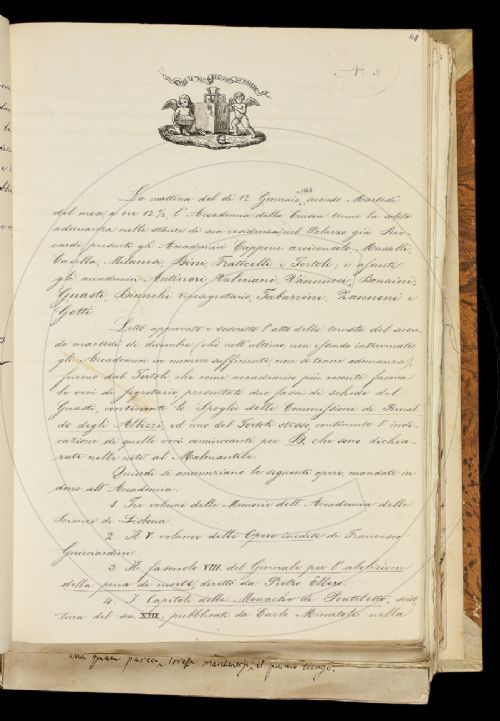 48
N.° 2.
IL PIÙ BEL FIOR NE COGLIE
La mattina del dì 12 Gennaio 1864 secondo Martedì
del mese, a ore 12 ½, l'Accademia della Crusca tenne la solita
adunanza nelle stanze di sua residenza nel Palazzo già Ric-
cardi presenti gli Accademici Capponi arciconsolo, Masselli
Casella, Milanesi, Bini, Fraticelli e Tortoli; e assenti
gli accademici Antinori, Valeriani, Vannucci, Bonaini,
Guasti, Bianchi vicesegretario, Tabarrini, Zannoni e
Gotti
Letto, approvato e soscritto l'atto della tornata del secon-
do martedì di dicembre (chè nell'ultimo, non essendo intervenuti
gli Accademici in numero sufficiente, non si tenne adunanza),
furono dal Tortoli, che come accademico più recente faceva
le veci di segretario, presentate due fasci di schede del
Guasti, contenente lo Spoglio delle Commissioni di Rinal-
do degli Albizzi, ed uno del Tortoli stesso, contenente l'indi-
cazione di quelle voci comincianti per B. che sono dichia-
rate nelle note al Malmantile.
Quindi si annunziano le seguenti opere, mandate in
dono all'Accademia.
1. Tre volumi delle Memorie dell'Accademia delle
Scienze di Lisbona
2. Il V. volume delle Opere inedite di Francesco
Guicciardini
3. Il fascicolo VIII. del Giornale per l'abolizione
della pena di morte, diretto da Pietro Ellero.
4. I Capitoli delle Monache di Pontetetto, scrit-
tura del sec. XIII. pubblicati da Carlo Minutoli nella